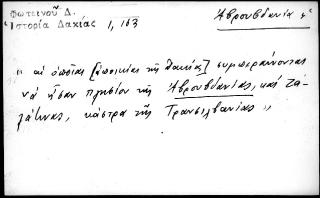 Φωτεινοῦ Δ.
Ἱστορία Δακίας 1, 163
Ἀβρουβδανία, ἡ
" αἱ ὁποῖαι [ἀποικίαι τῆς Δακίας] συμπεραίνονται
νὰ ἦσαν πλησίον τῆς Ἀβρουβδανίας, καὶ Ζα-
λάτνας, κάστρα τῆς Τρανσιλβανίας "